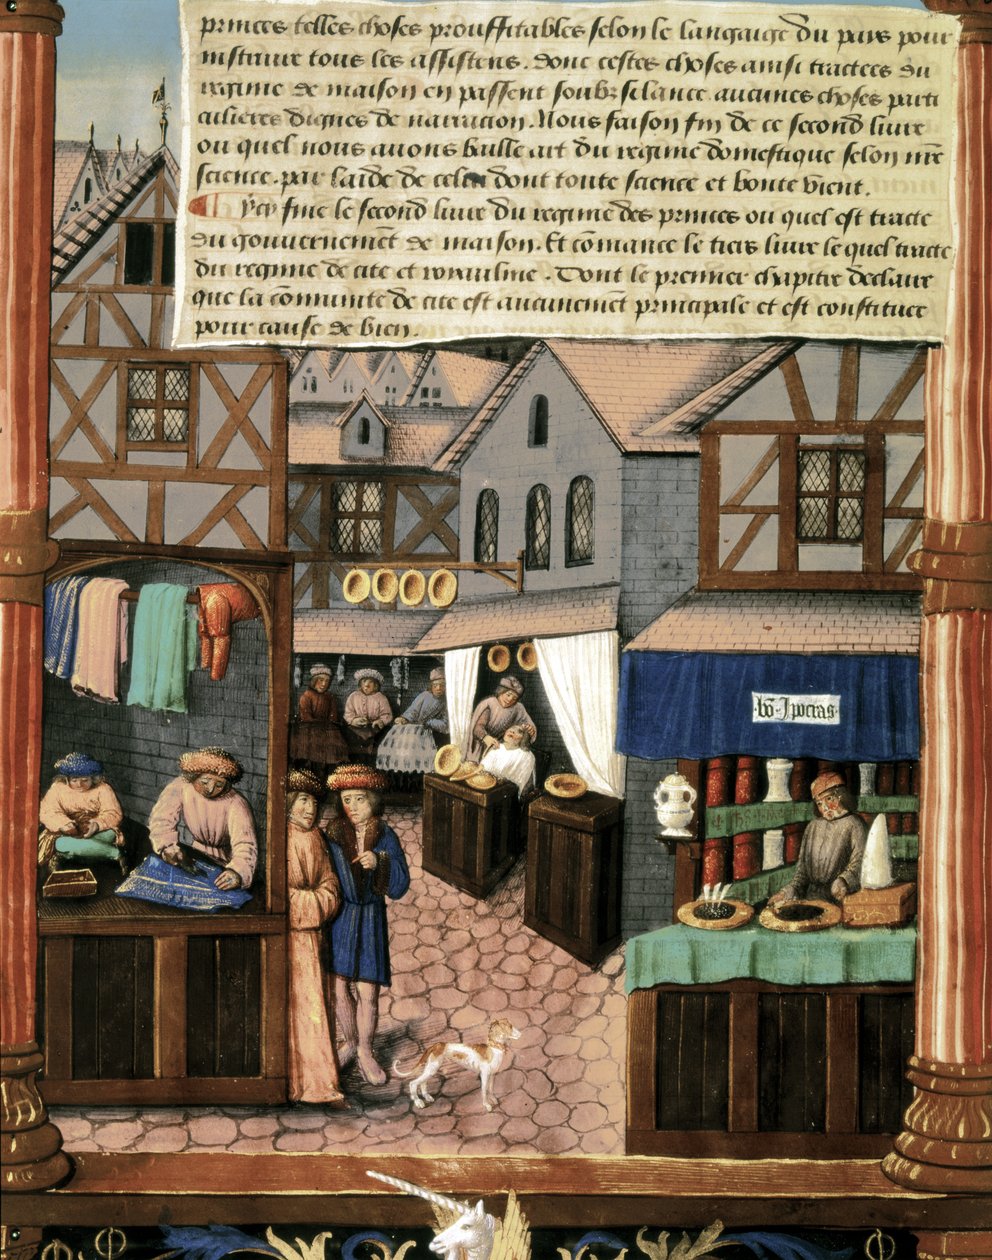 princes telles choses prouffitables selon le langaige du pays pour
instruire tous les assistens. Donc cestes choses ainsi tractees du
regime de maison en passent soubz silance aucunes choses parti
culieres dignes de narracion. Nous faison fin de ce second livre
ou quel nous avons baillé art du regime domestique selon nr̃e
science. par laide de celui dont toute science et bonte vient.
Ycy fine le second livre du regime des princes ou quel est tracte
du gouvernemẽt de maison. Et cõmance le tiers livre le quel tracte
du regime de cite et royaulme. Dont le premier chapitre declaire
que la cõmunite de cite est aucunemẽt principale et est constituee
pour cause de bien.
bõ Ipocras